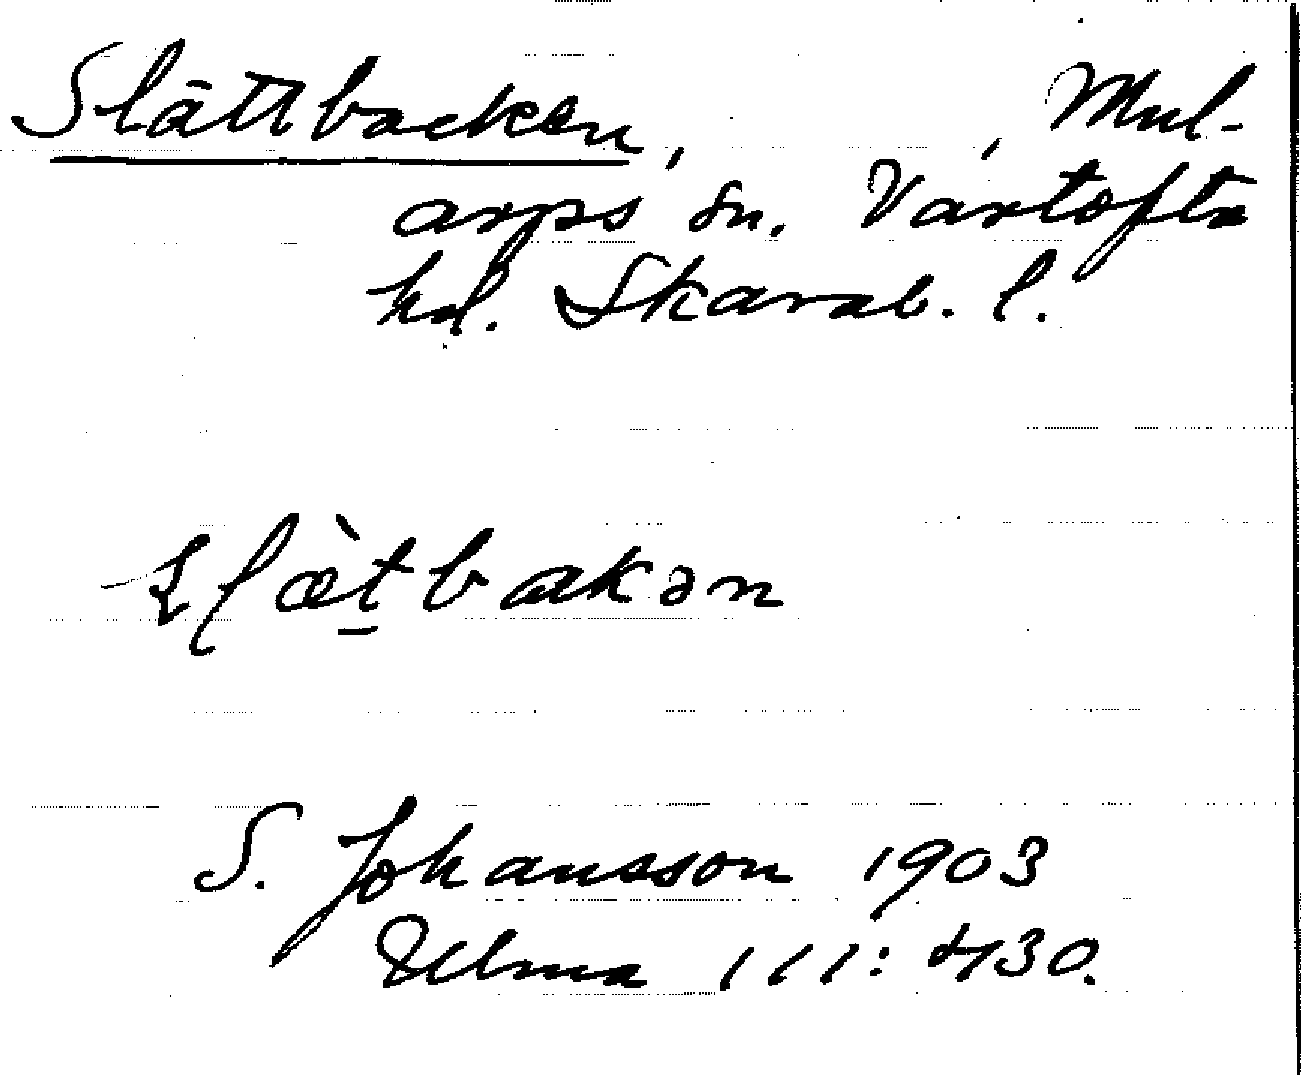 Slättbacken, , Mul-
arps sn. Vartofta
hd. Skarab. l.
S. Johansson 1903
Ulma 111:430.